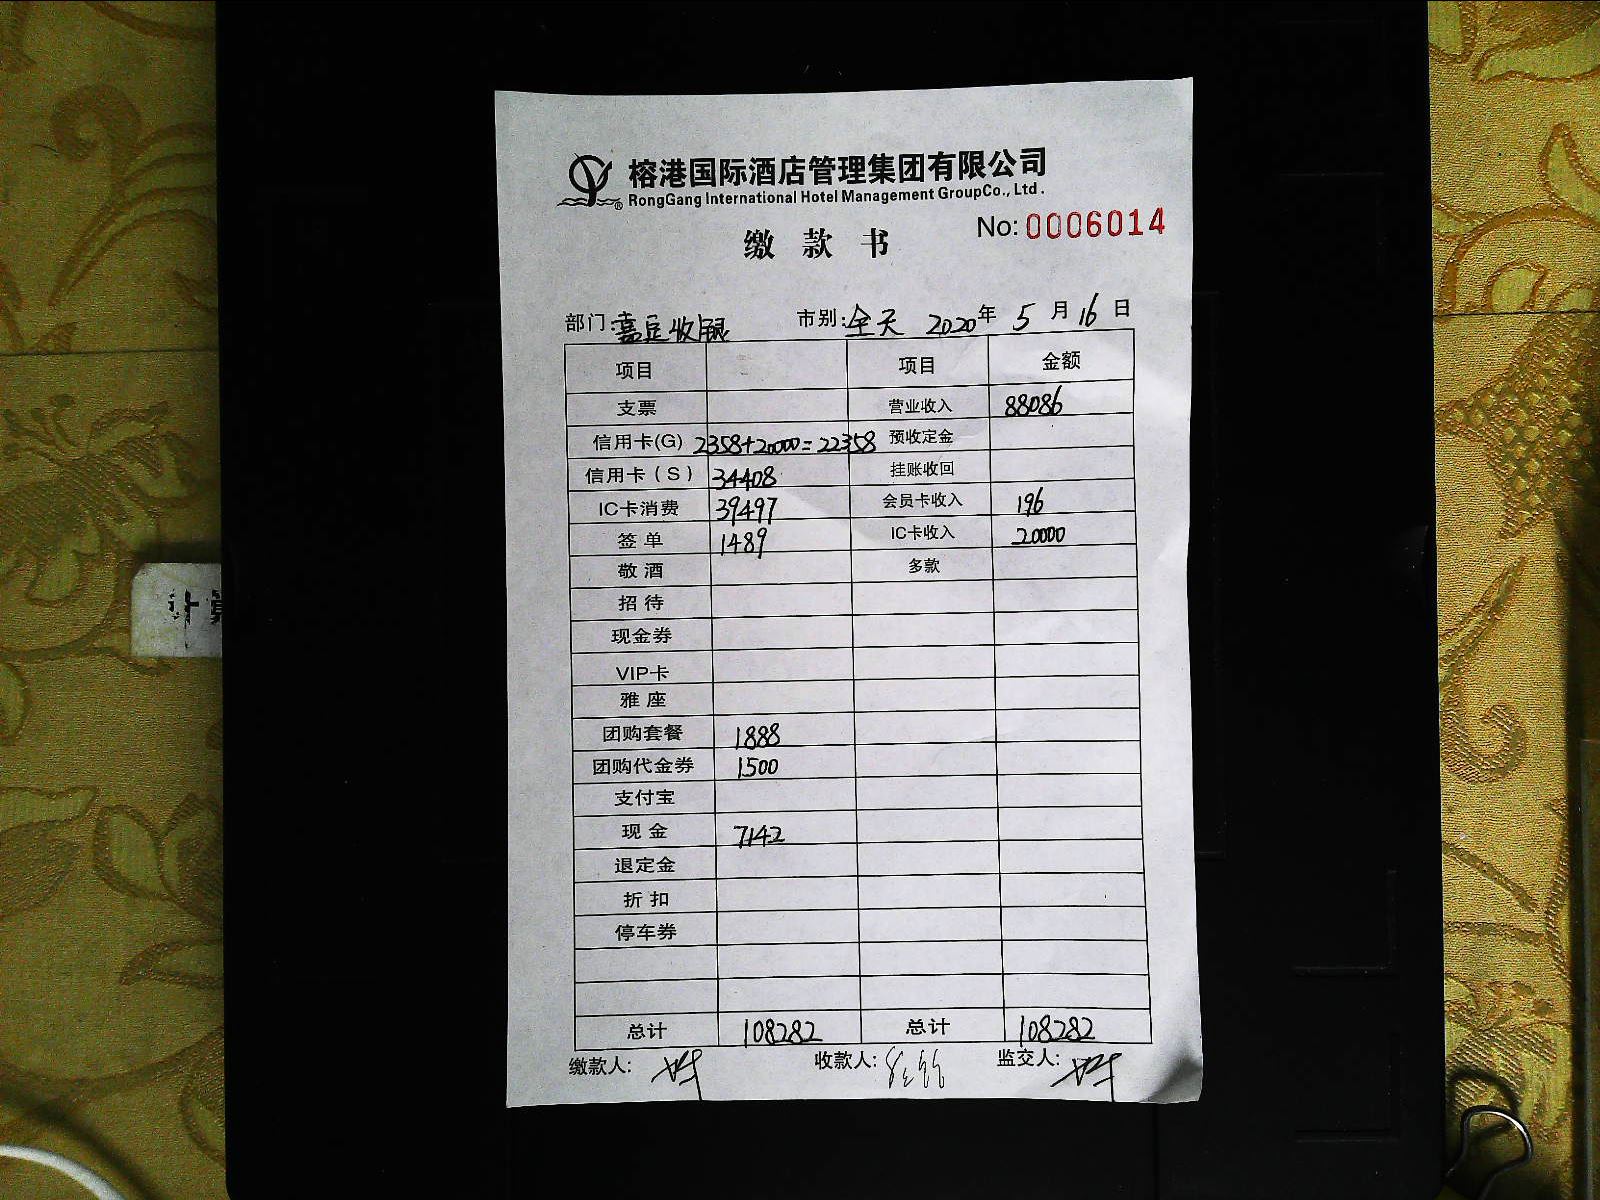 榕港国际酒店管理集团有限公司
RongGang International Hotel Management GroupCo., Ltd.
No: 0006014
缴 款 书
部门: 嘉定收银 市别: 全天 2020年 5 月 16 日
项目 项目 金额
支票 营业收入 88086
信用卡(G) 2358+20000=22358 预收定金
信用卡(S) 34408 挂账收回
IC卡消费 39497 会员卡收入 196
签 单 1489 IC卡收入 20000
敬 酒 多款
招 待
现金券
VIP卡
雅 座
团购套餐 1888
团购代金券 1500
支付宝
现 金 7142
退定金
折 扣
停车券
总计 108282 总计 108282
缴款人: 收款人: 监交人: